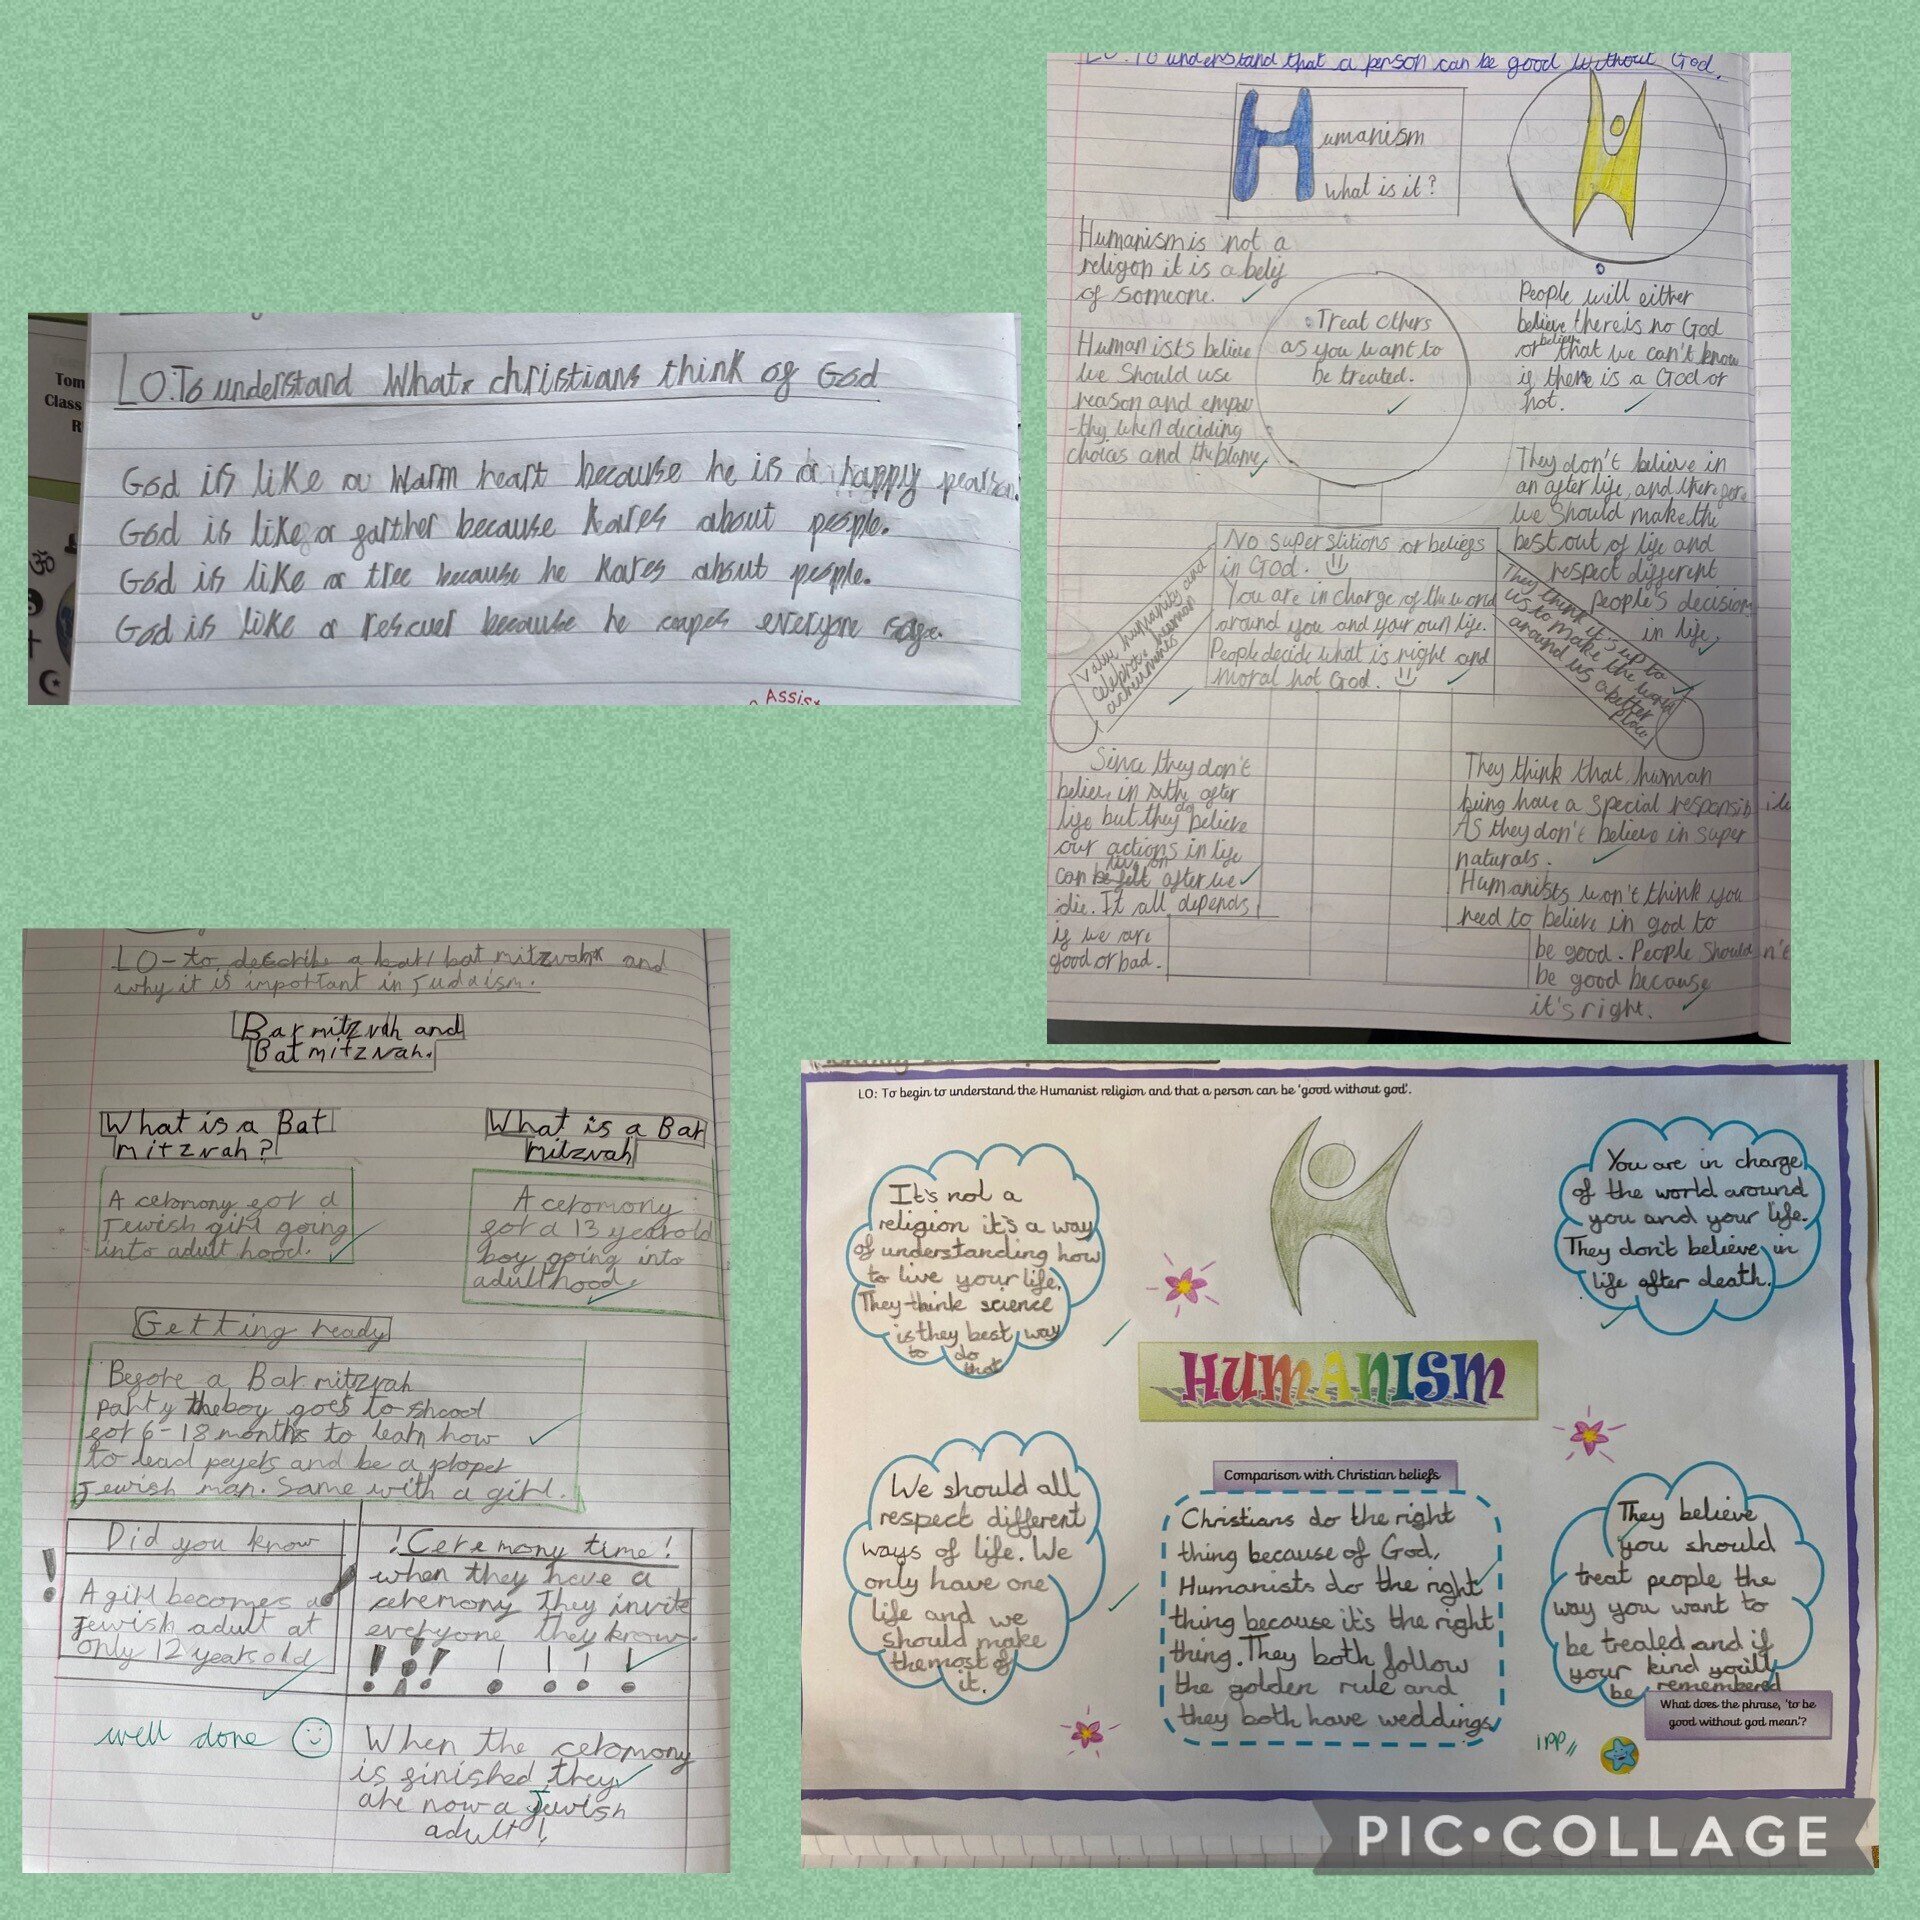 LO:To understand What christians think of God
God is like a warm heart because he is a happy pearson.
God is like a garther because kares about people.
God is like a tree because he kares about people.
God is like a rescuer because he ceapes everyone sage.
Assis
Tom
Class
R
LO: To understand that a person can be good without God.
Humanism
What is it?
Humanism is not a
religon it is a belif
of someone.
Humanists believe
we should use
reason and empa
-thy when deciding
choices and the
Treat others
as you want to
be treated.
People will either
believe there is no God
or believe that we can't know
if there is a God or
not.
They don't believe in
an after life, and therefore
we should make the
best out of life and
respect different
people's decision
in life,
No superstitions or beliefs
in God.
You are in charge of the world
around you and your own life.
People decide what is right and
moral not God.
Value humanity and
celebrate human
achievments
They think it's up to
us to make the world
around us a better
place
Since they don't
believe in the after
life but they do believe
our actions in life
can live on after we
die. It all depends
if we are
good or bad.
They think that human
being have a special responsib
As they don't believe in super
naturals.
Humanists won't think you
need to believe in god to
be good. People should n't
be good because
it's right.
LO-to describe a bar/bat mitzvah and
why it is important in Judaism.
Bar mitzvah and
Bat mitzvah.
What is a Bat
mitzvah?
A ceromony for a
Jewish girl going
into adult hood.
What is a Bar
mitzvah
A ceromony
for a 13 year old
boy going into
adulthood
Getting ready
Before a Bar mitzvah
party the boy goes to shcool
for 6-18 months to learn how
to lead peyers and be a proper
Jewish man. Same with a girl.
Did you know
A girl becomes a
Jewish adult at
only 12 years old
!Ceremony time!
when they have a
ceremony they invite
everyone they know.
When the ceromony
is finished they
are now a Jewish
adult!
well done
LO: To begin to understand the Humanist religion and that a person can be 'good without god'.
It's not a
religion it's a way
of understanding how
to live your life.
They think science
is they best way
to do
that
You are in charge
of the world around
you and your life.
They don't believe in
life after death.
HUMANISM
We should all
respect different
ways of life. We
only have one
life and we
should make
the most of
it.
Comparison with Christian beliefs
Christians do the right
thing because of God,
Humanists do the right
thing because it's the right
thing. They both follow
the golden rule and
they both have weddings
They believe
you should
treat people the
way you want to
be treated and if
your kind you'll
be remembered
What does the phrase, 'to be
good without god mean'?
1PP
PIC•COLLAGE